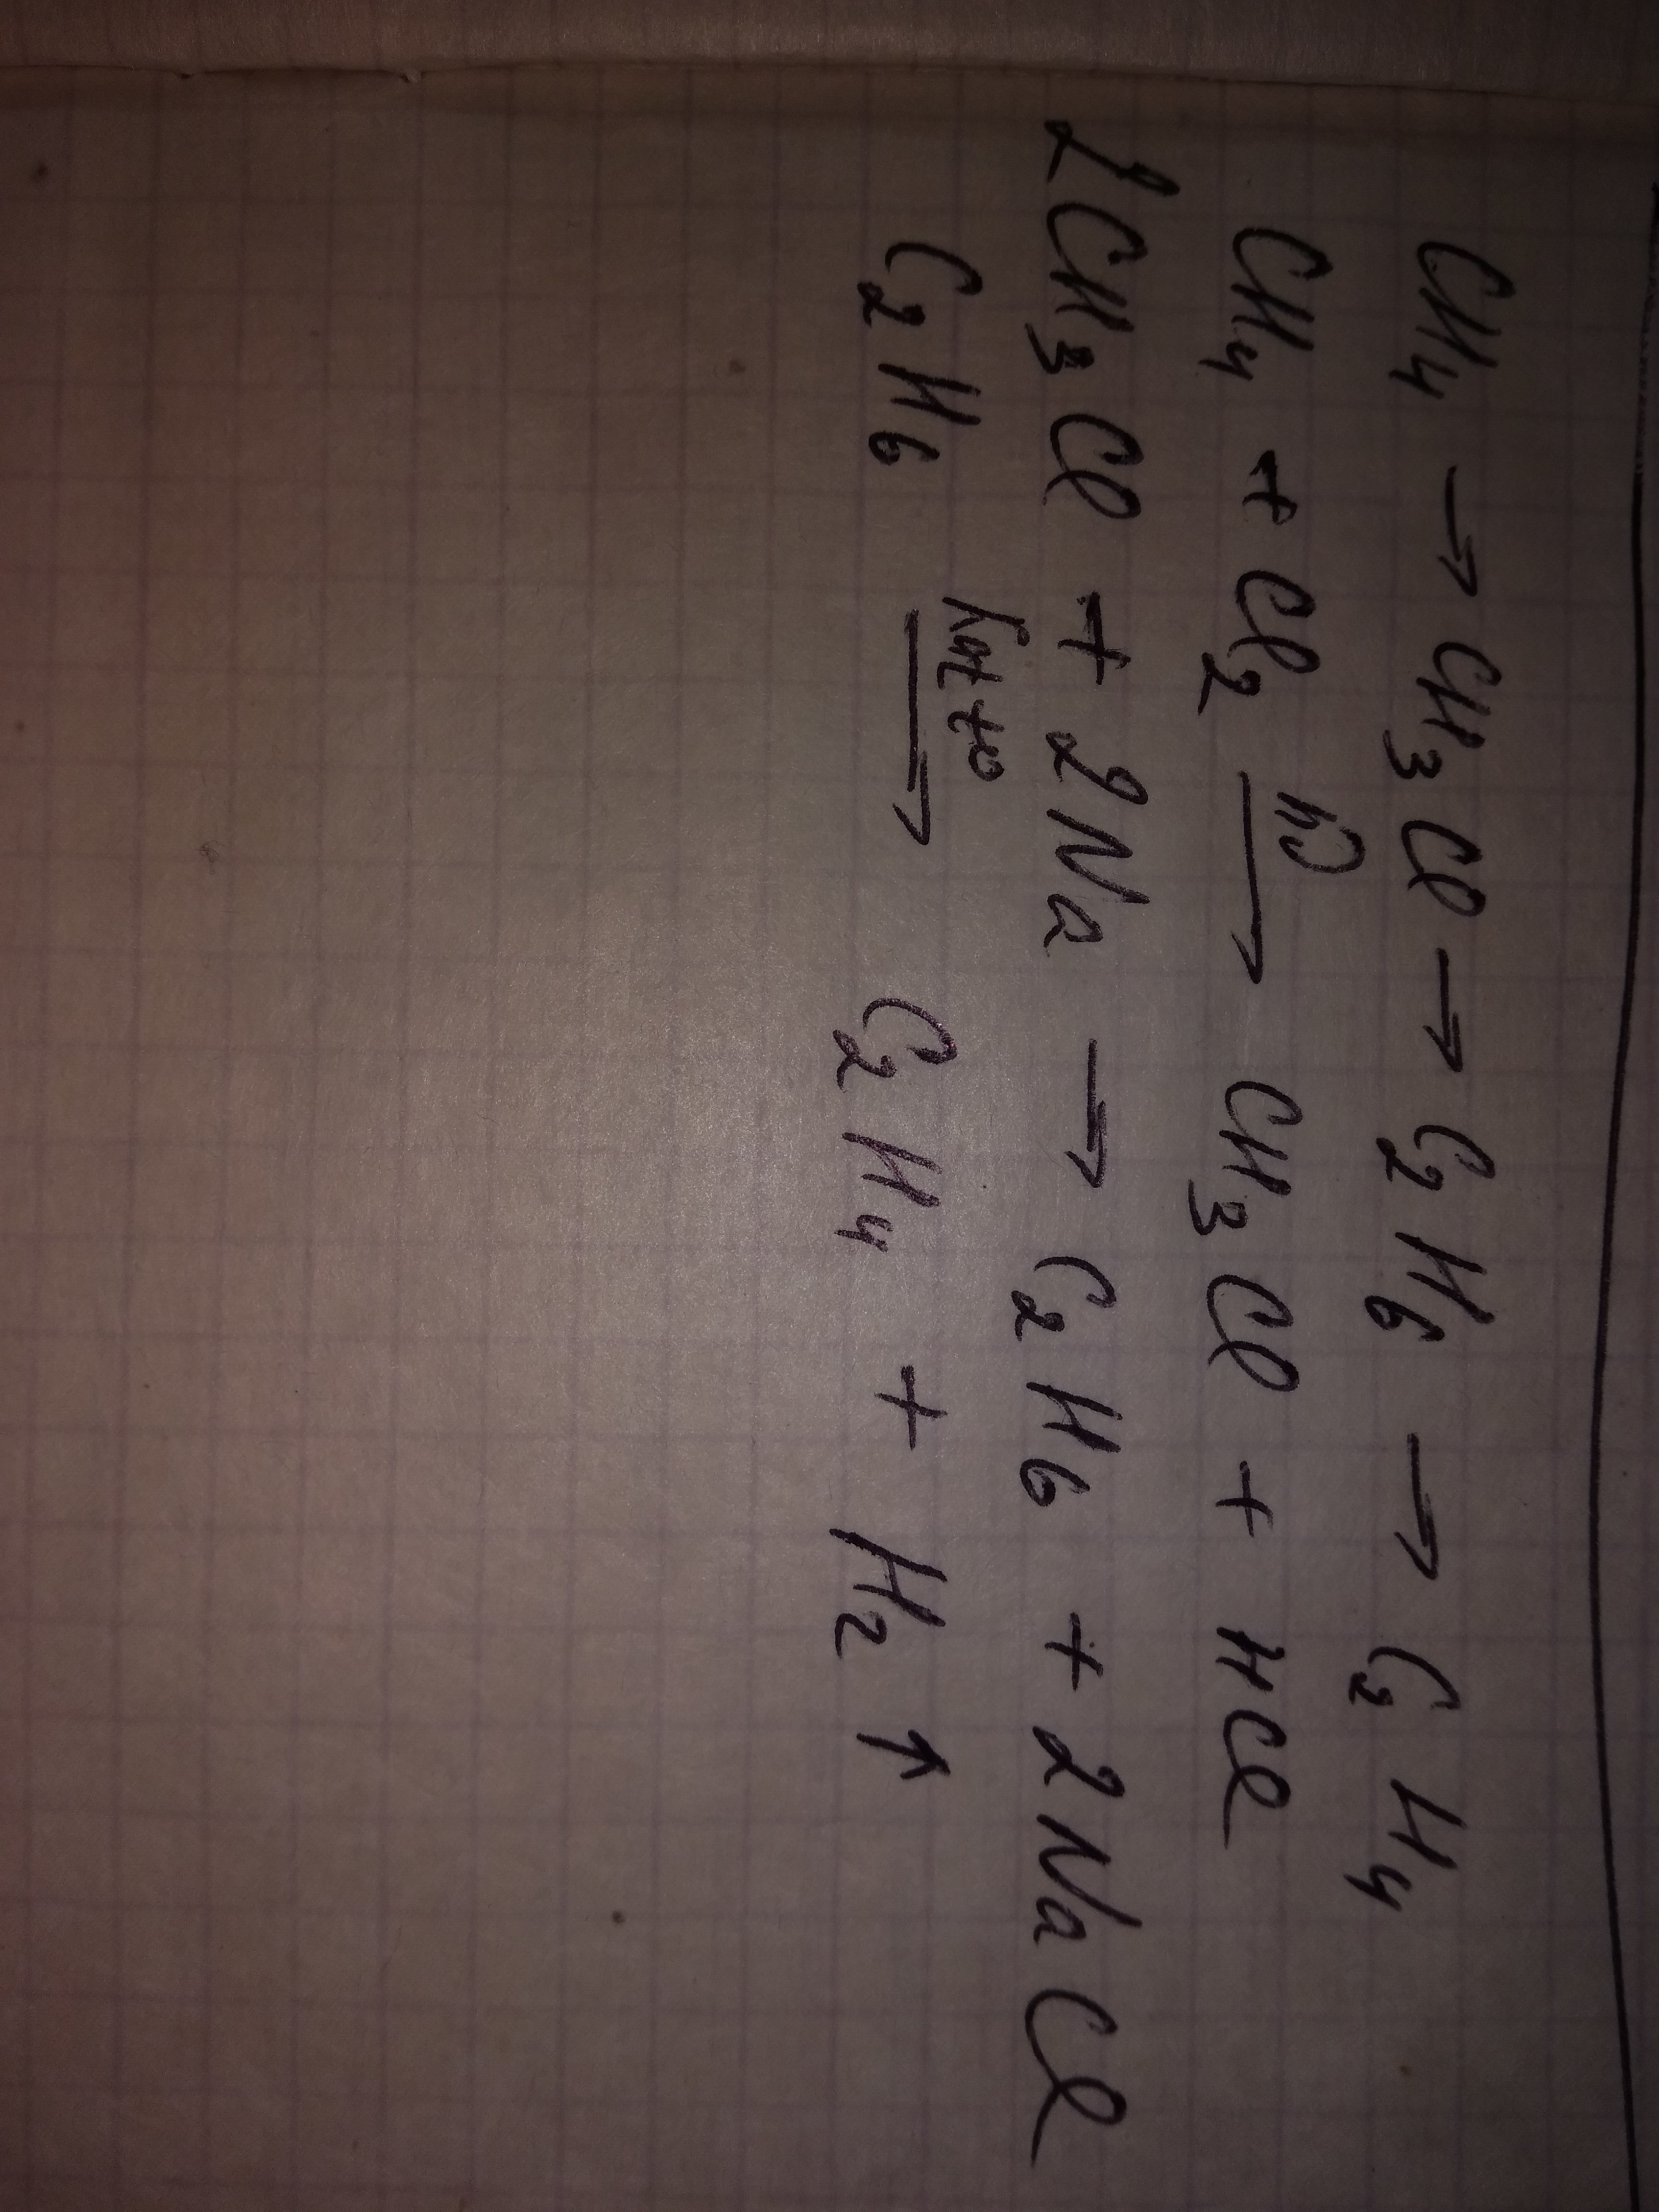 CH₄ → CH₃Cl → C₂H₆ → C₂H₄
CH₄ + Cl₂ hν → CH₃Cl + HCl
2CH₃Cl + 2Na → C₂H₆ + 2NaCl
C₂H₆ kat t° → C₂H₄ + H₂ ↑